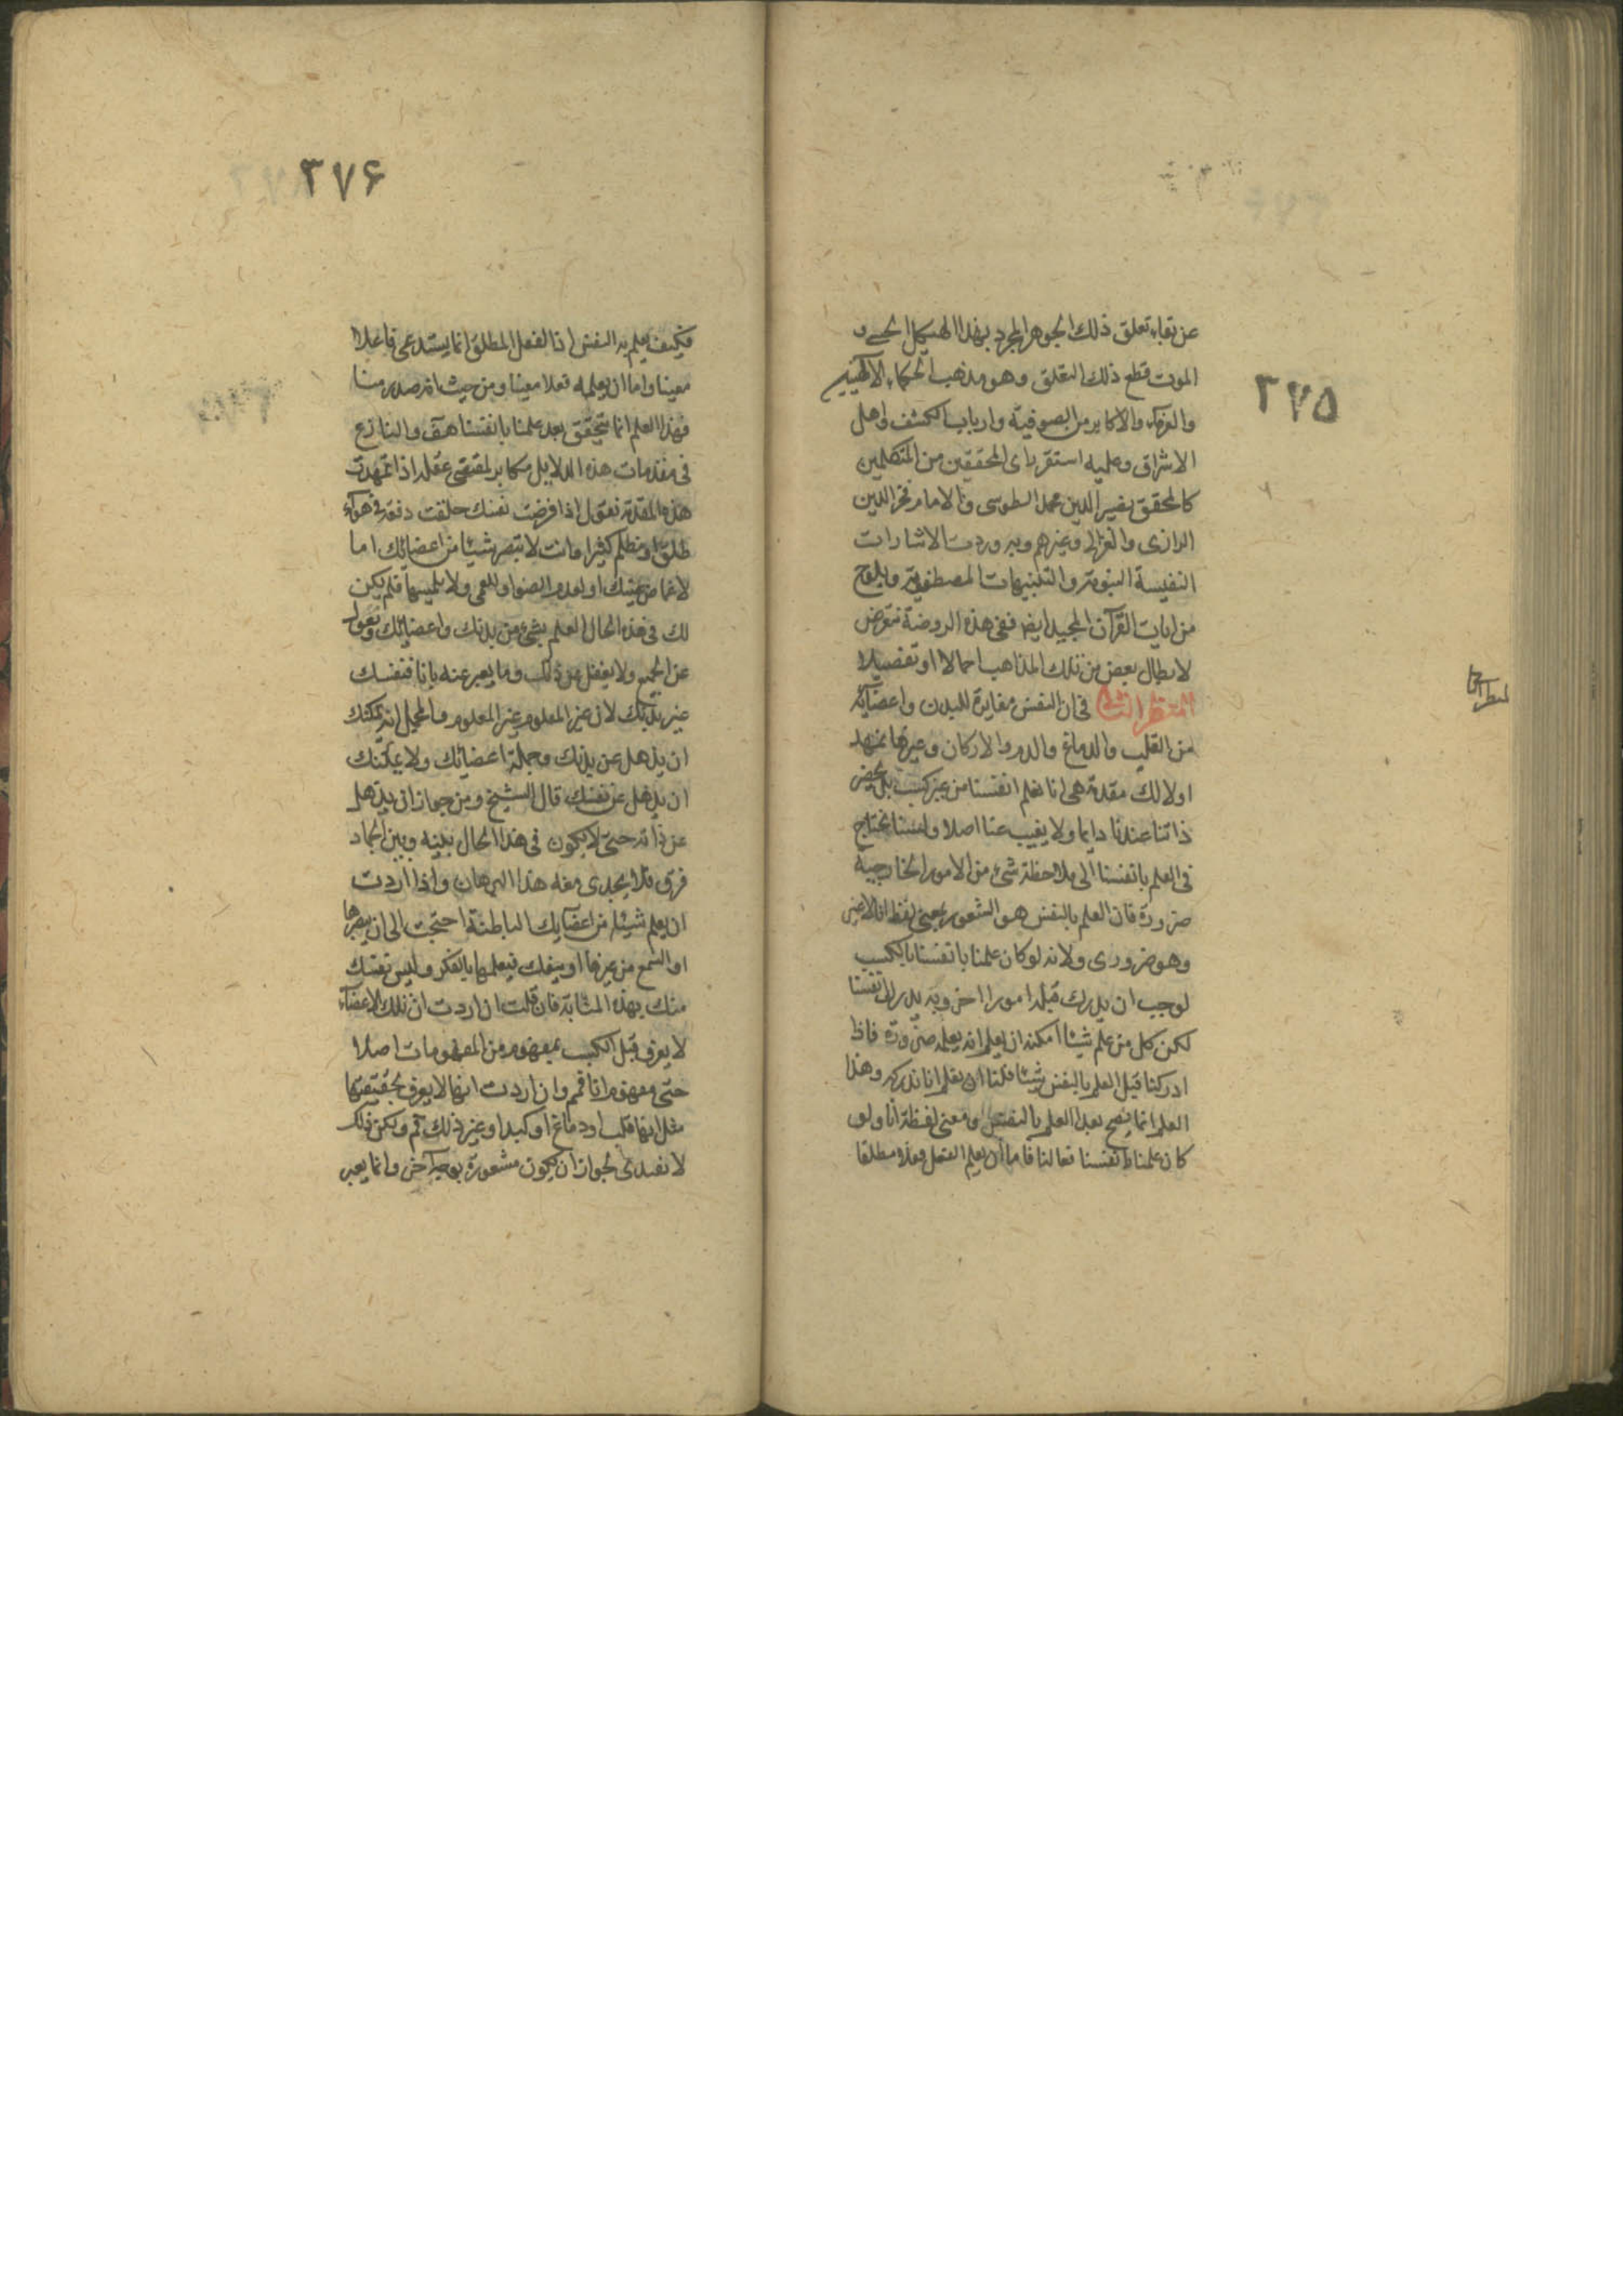 ٣٧٥
عن بقاء تعلق ذلك الجوهر المجرد بهذا الهيكل الحسى و
الموت قطع ذلك التعلق وهو مذهب الحكماء الالهيين
والعرفاء والاكابر من الصوفية وارباب الكشف واهل
الاشراق وعليه استقر راى المحققين من المتكلمين
كالمحقق نصير الدين محمد الطوسى والامام فخر الدين
الرازى والغزالى وغيرهم وبه وردت الاشارات
النفيسة النبوية والتنبيهات المصطفوية ويلوح
من ايات القرآن المجيد ايضا ففى هذه الروضة نتعرض
لابطال بعض من تلك المذاهب اجمالا او تفصيلا
المنظر الثانى فى ان النفس مغايرة للبدن واعضائه
من القلب والدماغ والدم والاركان وغيرها نمهد
اولا لك مقدمة هى انا نعلم انفسنا من غير كسب بل يحضر
ذاتنا عندنا دايما ولا يغيب عنا اصلا ولسنا نحتاج
فى العلم بانفسنا الى ملاحظة شئ من الامور الخارجية
ضرورة فان العلم بالنفس هو الشعور بمعنى لفظ انا لا غير
وهو ضرورى ولانه لو كان علمنا بانفسنا بالكسب
لوجب ان يدرك قبله امورا اخر وبه يدرك انفسنا
لكن كل من علم شيئا امكنه ان يعلم انه يعلمه ضرورة فاذا
ادركنا قبل العلم بالنفس شيئا فلنا ان نعلم انا ندركه وهذا
العلم انما يصح بعد العلم بالنفس ومعنى لفظة انا ولو
كان علمنا بانفسنا فعالنا فاما ان يعلم الفعل فعلا مطلقا
٣٧۶
فكيف يعلم به النفس اذ الفعل المطلق انما يستدعى فاعلا
معينا واما ان يعلمه فعلا معينا ومن حيث انه صدر منا
فهذا العلم انما يتحقق بعد علمنا بانفسنا هف والنازع
فى مقدمات هذه الدلايل مكابر لمقتضى عقله اذا تمهدت
هذه المقدمة نقول اذا فرضت نفسك خلقت دفعة فى هواء
طلق او مظلم كثيرا وانت لا تبصر شيئا من اعضائك اما
لاغماض عينك او لعدم الضوء او للعمى ولا يلمسها فلم يكن
لك فى هذه الحال العلم بشئ من بدنك واعضائك
عن الجميع ولا يغفل عن ذلك وما يعبر عنه بانا فنفسك
غير بدنك لان غير المعلوم غير المعلوم وبالجملة انه يمكنك
ان يذهل عن بدنك وجملة اعضائك ولا يمكنك
ان يذهل عن نفسك قال الشيخ ومن جوز ان يذهل
عن ذاته حتى لا يكون فى هذا الحال بينه وبين الجماد
فرق فلا يجدى معه هذا البرهان واذا اردت
ان يعلم شيئا من اعضايك الباطنة احتجت الى ان يبصرها
او السمع من غيرها او فيعلمها بالفكر وليس نفسك
منك بهذه المثابة فان قلت ان اردت ان تلك الاعضاء
لا يعرف قبل الكسب بمفهوم من المفهومات اصلا
حتى مفهوم انا فمم وان اردت انها لا يعرف بحقيقتها
مثل انها قلب او دماغ او كبد او غير ذلك فمم ولكن ذلك
لا يفيدك لجواز ان يكون مشعورة بوجه آخر وانما يعبر